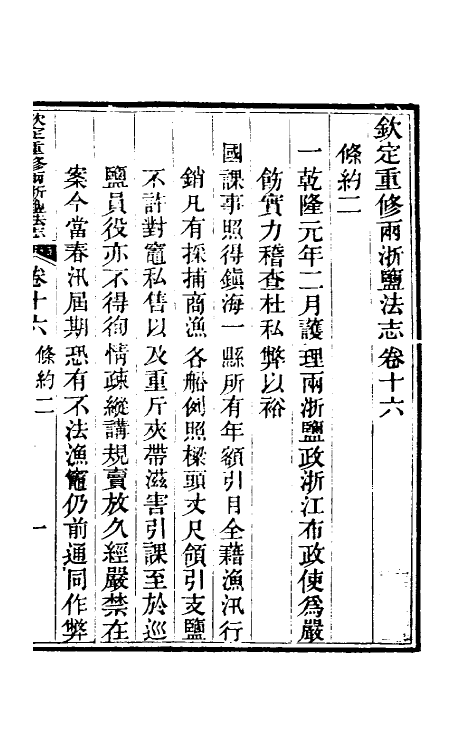 欽定重修兩浙鹽法志卷十六
條約二
一乾隆元年二月護理兩浙鹽政浙江布政使爲嚴
飭實力稽查杜私弊以裕
國課事照得鎮海一縣所有年額引目全藉漁汛行
銷凡有採捕商漁各船例照樑頭丈尺領引支鹽
不許對竈私售以及重斤夾帶滋害引課至於巡
鹽員役亦不得徇情疎縱講規賣放久經嚴禁在
案今當春汛屆期恐有不法漁竈仍前通同作弊
欽定重修兩浙鹽法志
卷十六 條約二
一